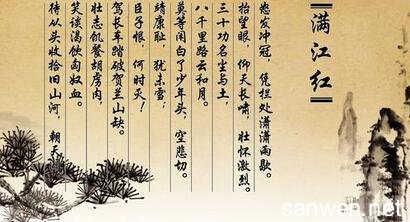 满江红
怒发冲冠，凭栏处潇潇雨歇。
抬望眼，仰天长啸，壮怀激烈。
三十功名尘与土，
八千里路云和月。
莫等闲白了少年头，空悲切。
靖康耻，犹未雪，
臣子恨，何时灭！
驾长车踏破贺兰山缺。
壮志饥餐胡虏肉，
笑谈渴饮匈奴血。
待从头收拾旧山河，朝天
sanwen.net